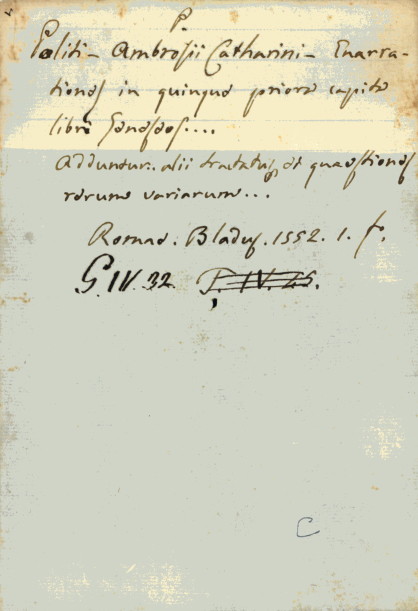 P.
Politi - Ambrosii Catharini - Enarra-
tiones in quinque priora capita
libri Geneseos....
Adduntur. alii tractatus, et quaestiones
rerum variarum...
Romae. Bladus. 1552. 1. f.
G. IV. 32. P. IV. 25.
C